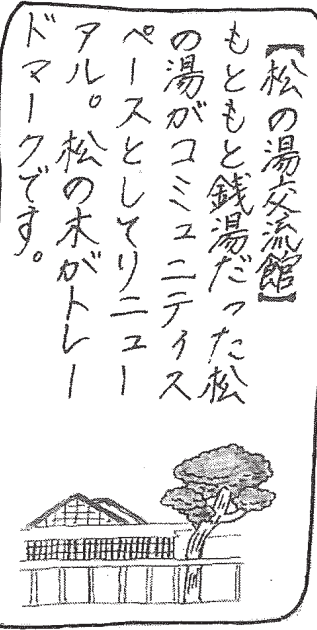 【松の湯交流館】
もともと銭湯だった松
の湯がコミュニティス
ペースとしてリニュー
アル。松の木がトレー
ドマークです。